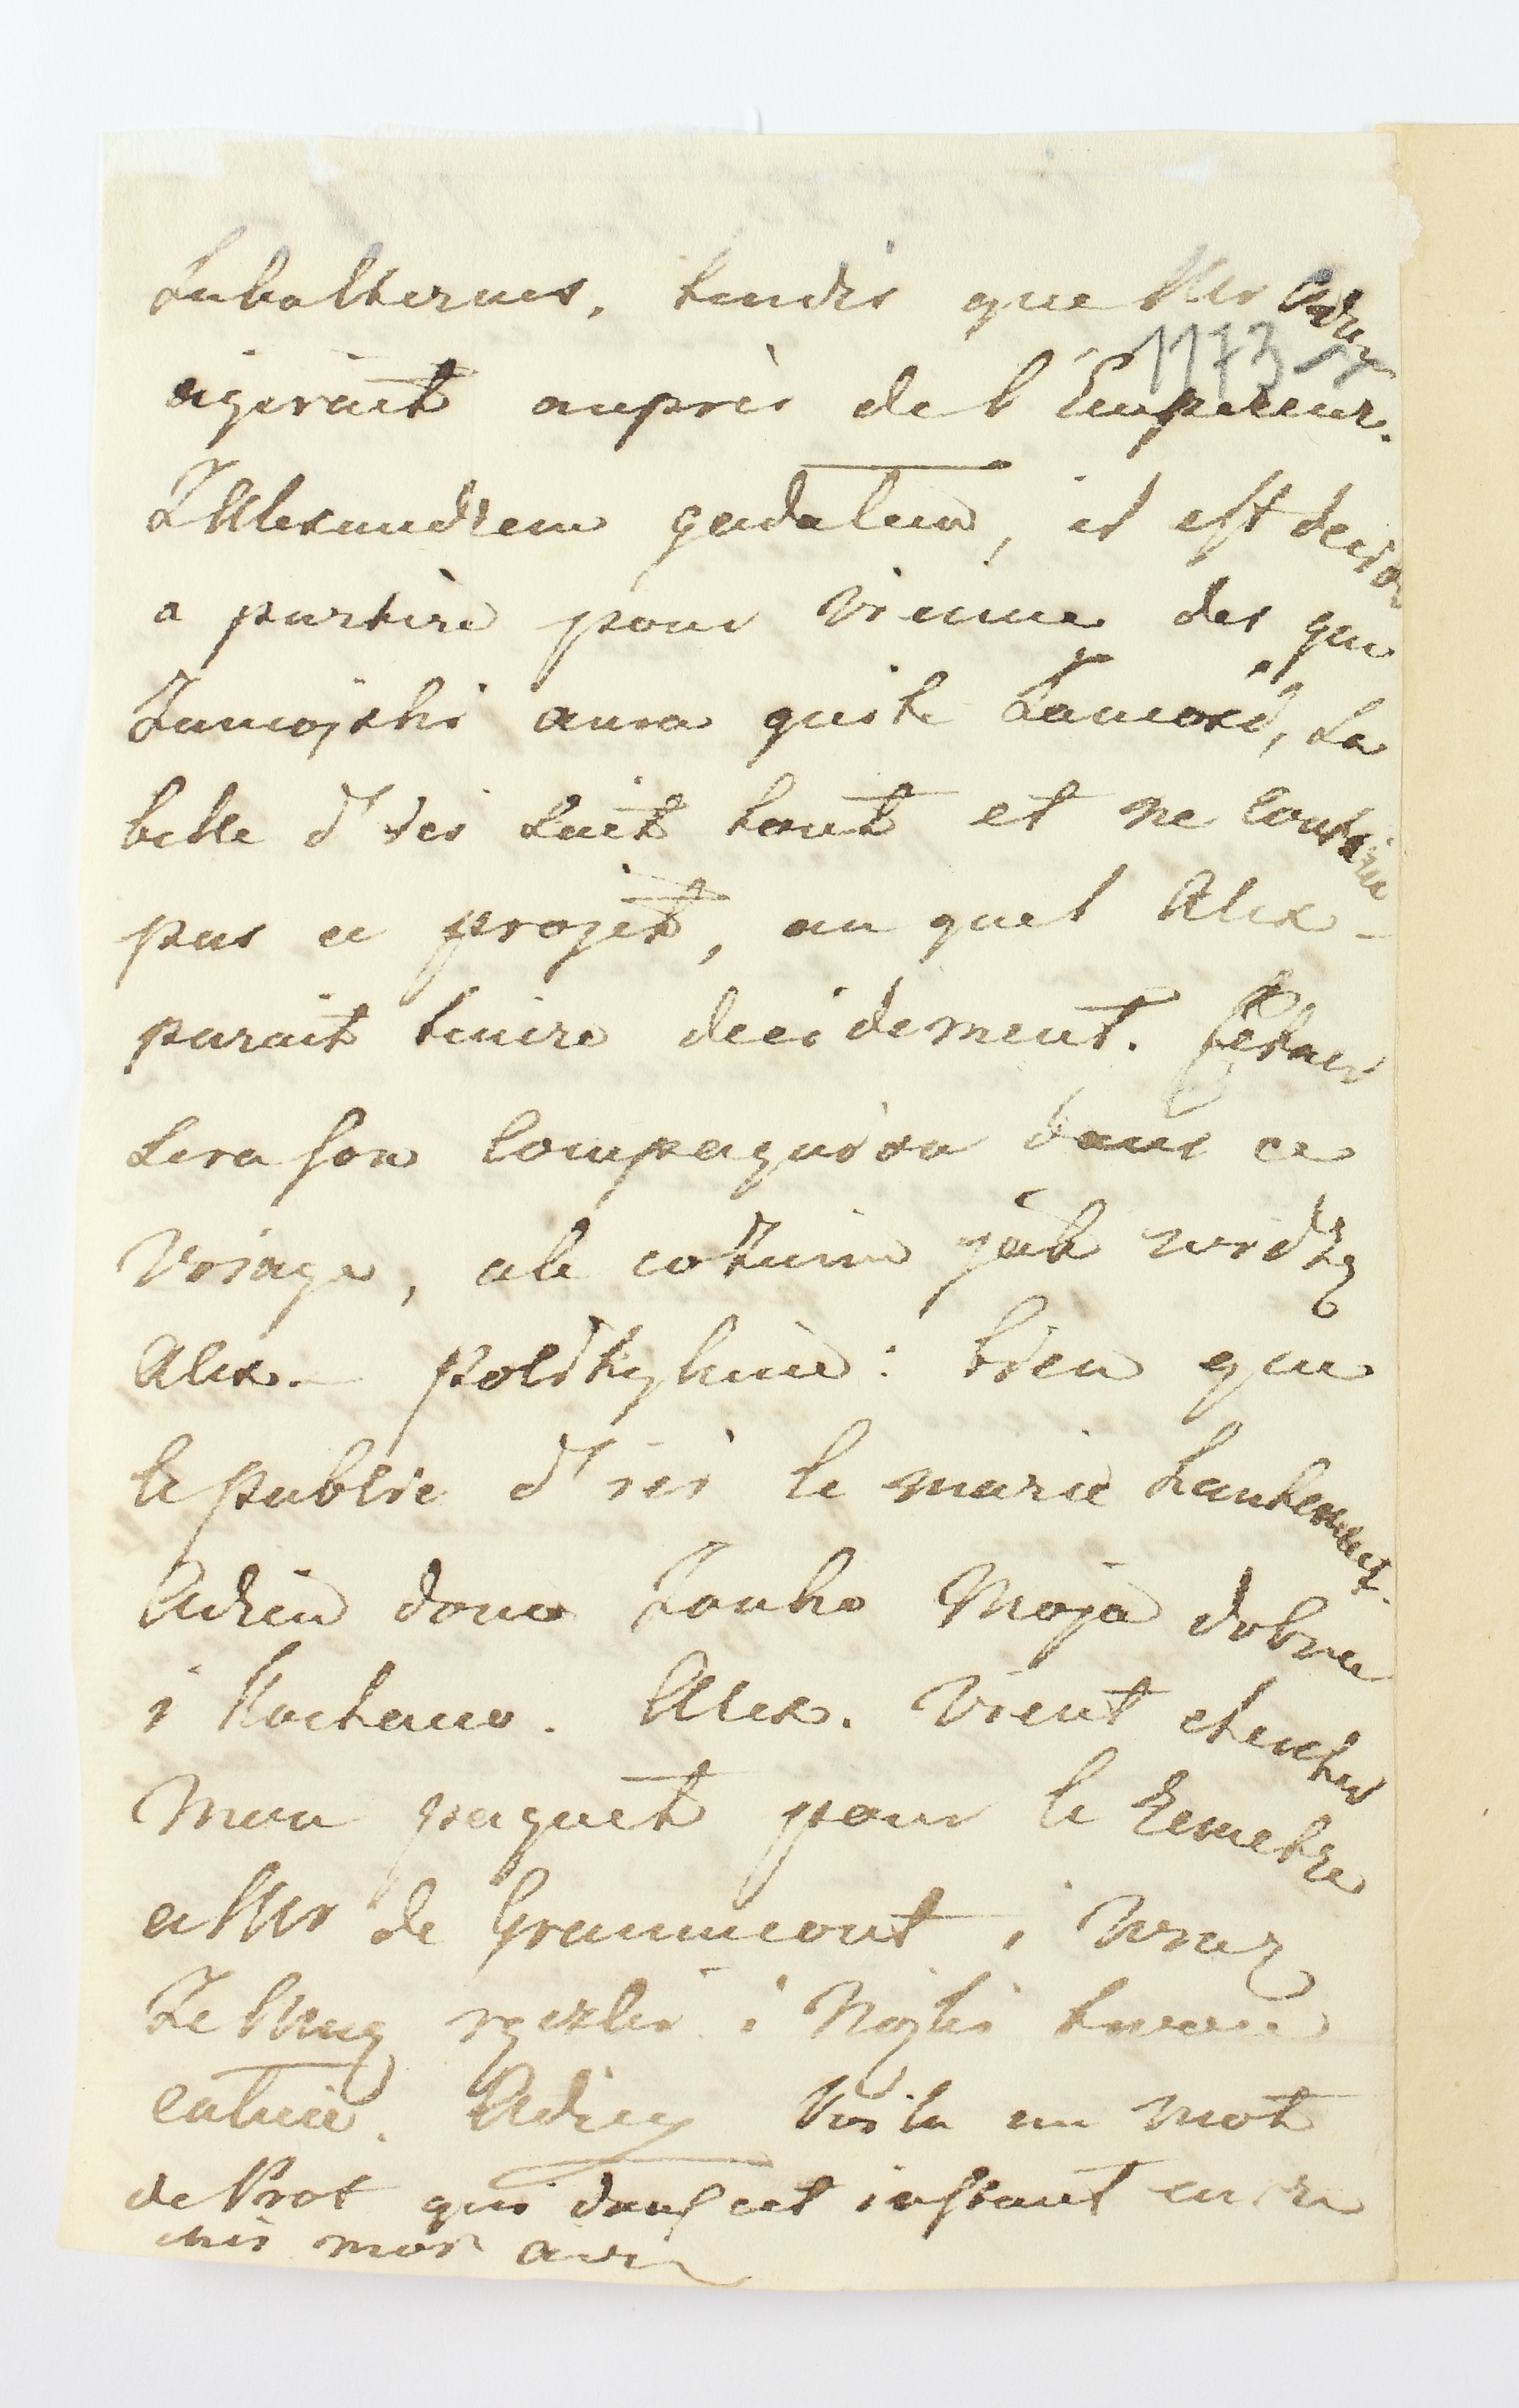 subalternes, tendis que Mr Ody
1173
agirait auprès de l'Empereur.
Z Alexandrem gadalem, il est decidé
a partire pour Vienne des que
Zamojski aura quité Zamość, la
belle d'ici sait tout et ne contrarie
pas ce projet, au quel Alex-
parait tenire decidement.
sera son compagnion dans ce
voiage, ale co Zimie jak widzę
Alex. poldkyhuie: bien que
le public d'ici le marie hautement.
Adieu donc Zonko Moja dobra
i Kochana. Alex. vient chercher
mon paquet pour le remetre
a Mr de Grammont, i wraz
ze Mną rączki i Nóżki twoie
caluie. Adieu Voila un mot
de Prot qui dans cet instant en